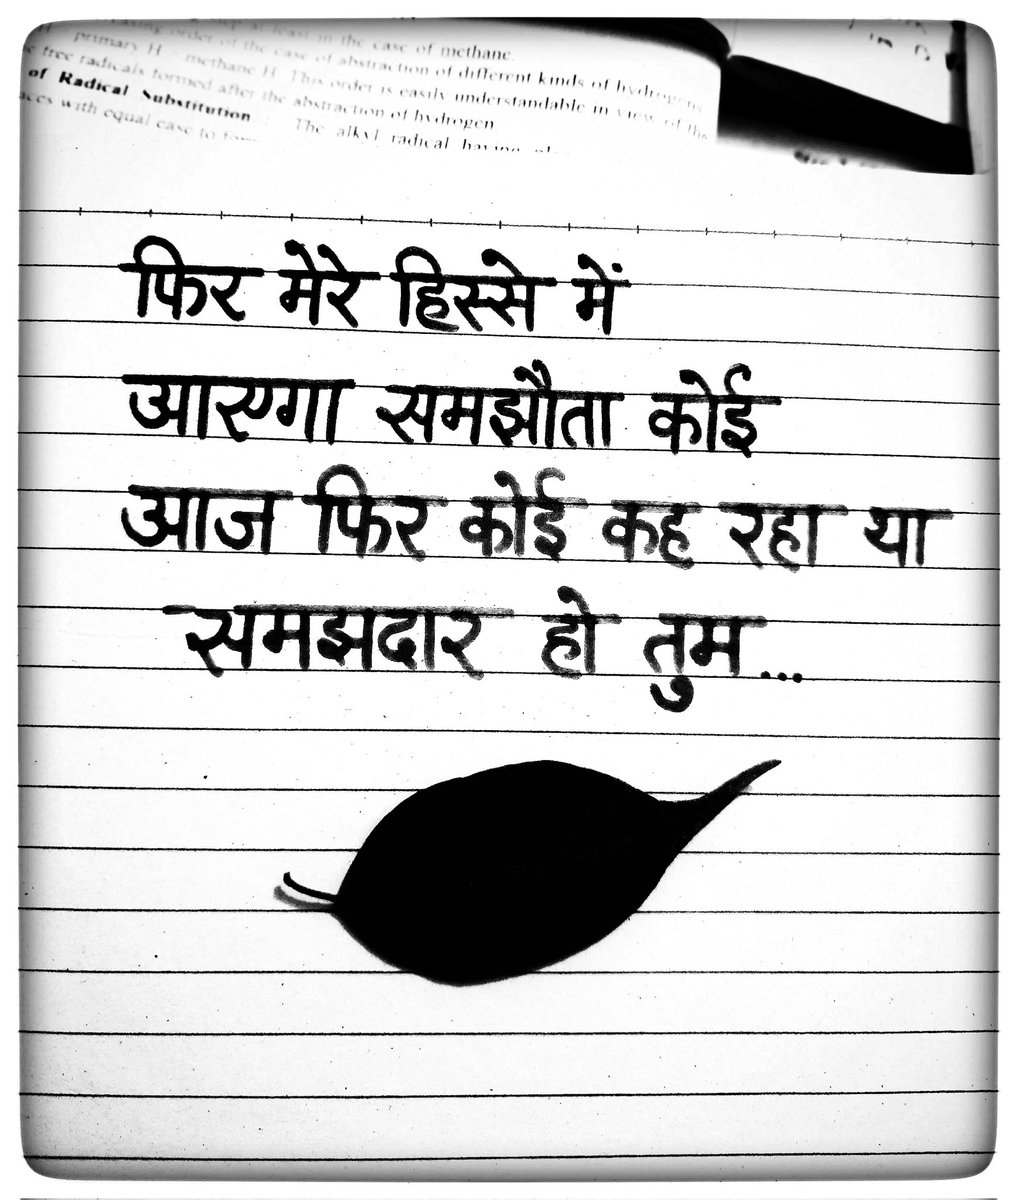 step at least in the case of methane.
order of the case of abstraction of different kinds of hydrogens
primary H - methane H This order is easily understandable in view of the
free radicals formed after the abstraction of hydrogen
of Radical Substitution : The alkyl radical having
with equal ease to form
फिर मेरे हिस्से में
आएगा समझौता कोई
आज फिर कोई कह रहा था
समझदार हो तुम...